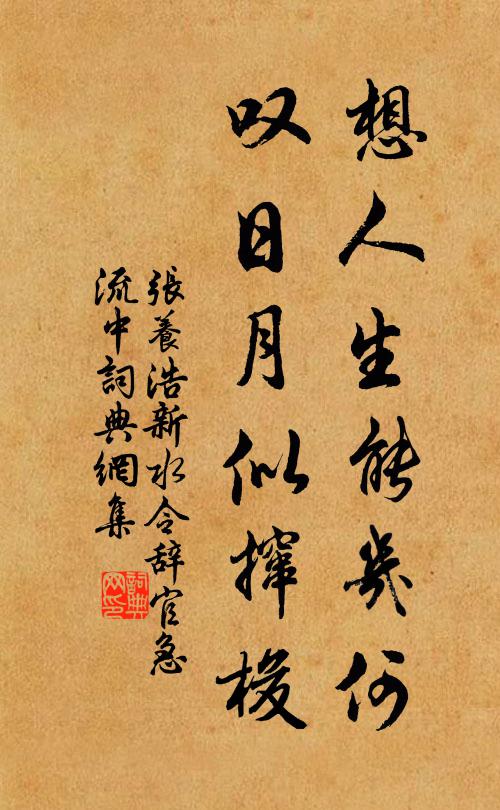 想人生能幾何
叹日月似撺梭
張養浩新水令辞官急
流中詞典網集
詞典网印